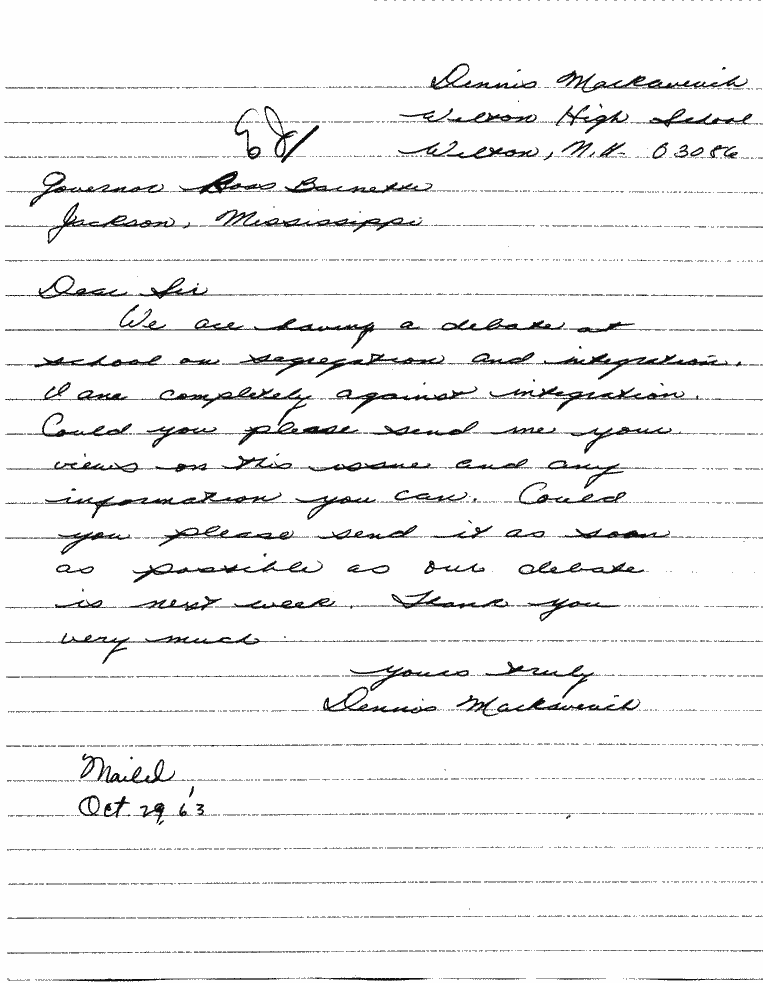 Dennis Mackavevich
Wilton High School
Wilton, N.H. 03086
Governor Ross Barnette
Jackson, Mississippi
Dear Sir
We are having a debate at
school on segregation and integration.
I am completely against integration.
Could you please send me your
views on this issue and any
information you can. Could
you please send it as soon
as possible as our debate
is next week. Thank you
very much
yours truly
Dennis Mackavevich
Mailed
Oct 29, '63